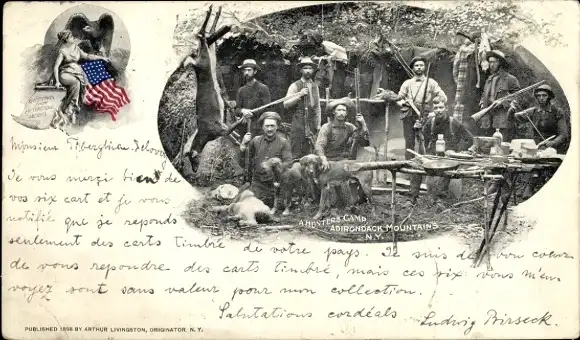 A HUNTERS CAMP
ADIRONDACK MOUNTAINS
N.Y.
Monsieur
Je vous merçi bien de
vos six cart et je vous
notifié que je reponds
seulement des carts timbré de votre pays. Je suis de bon coeur
de vous rependre des carts timbré, mais ces six vous m'en
voyez sont sans valeur pour mon collection.
Salutations cordéals
Ludwig
PUBLISHED 1898 BY ARTHUR LIVINGSTON, ORIGINATOR, N.Y.